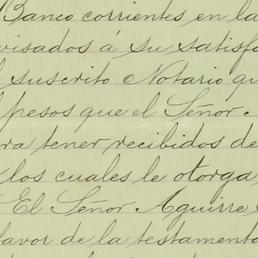 Banco corrientes en la
visados á su satisfa
suscrito Notario qu
pesos que el Señor
ra tener recibidos de
los cuales le otorga
El Señor Aguirre
favor de la testamento